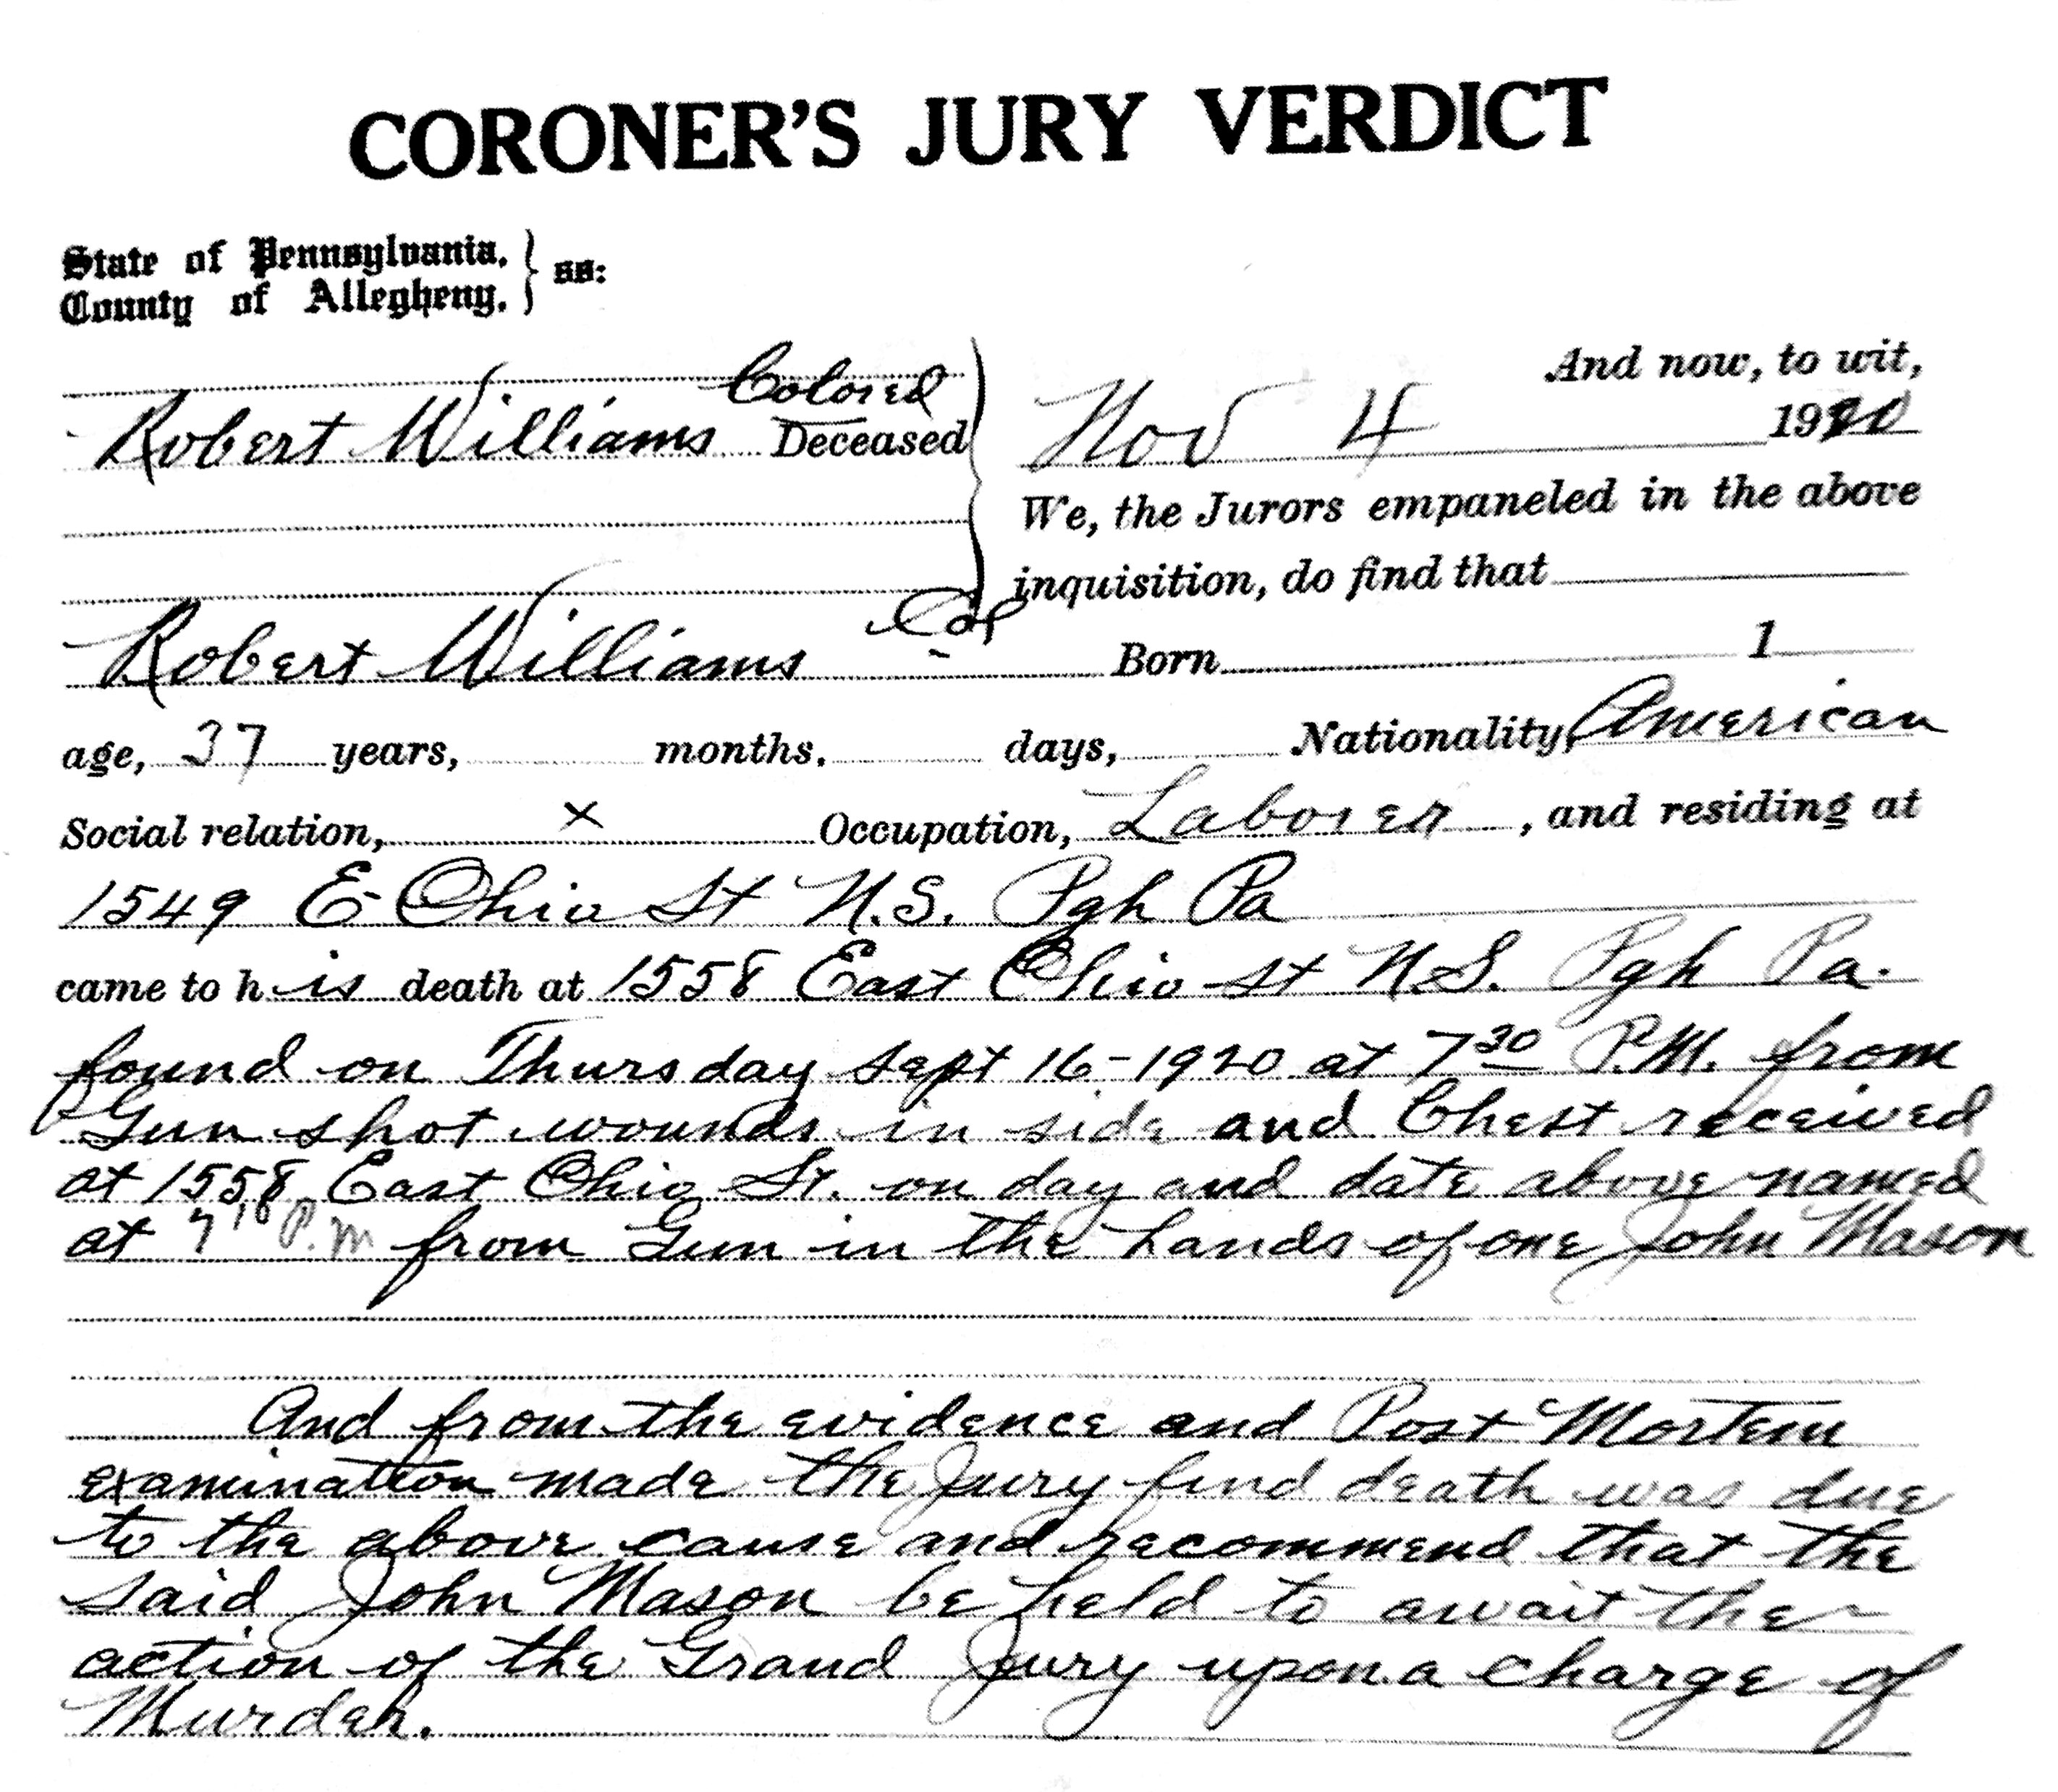 CORONER'S JURY VERDICT
State of Pennsylvania, } ss:
County of Allegheny, }
And now, to wit,
Colored
Robert Williams Deceased
Nov 4 1920
We, the Jurors empaneled in the above
inquisition, do find that
Robert Williams Col Born 1
age, 37 years, months, days, Nationality, American
Social relation, x Occupation, Laborer, and residing at
1549 E Ohio St N.S. Pgh Pa
came to h is death at 1558 East Ohio St N.S. Pgh Pa.
found on Thursday Sept 16-1920 at 7 30 P.M. from
Gun shot wounds in side and Chest received
at 1558 East Ohio St. on day and date above named
at 7 10 P.M from Gun in the hands of one John Mason
And from the evidence and Post Mortem
examination made the Jury find death was due
to the above cause and recommend that the
said John Mason be held to await the
action of the Grand Jury upon a charge of
Murder.